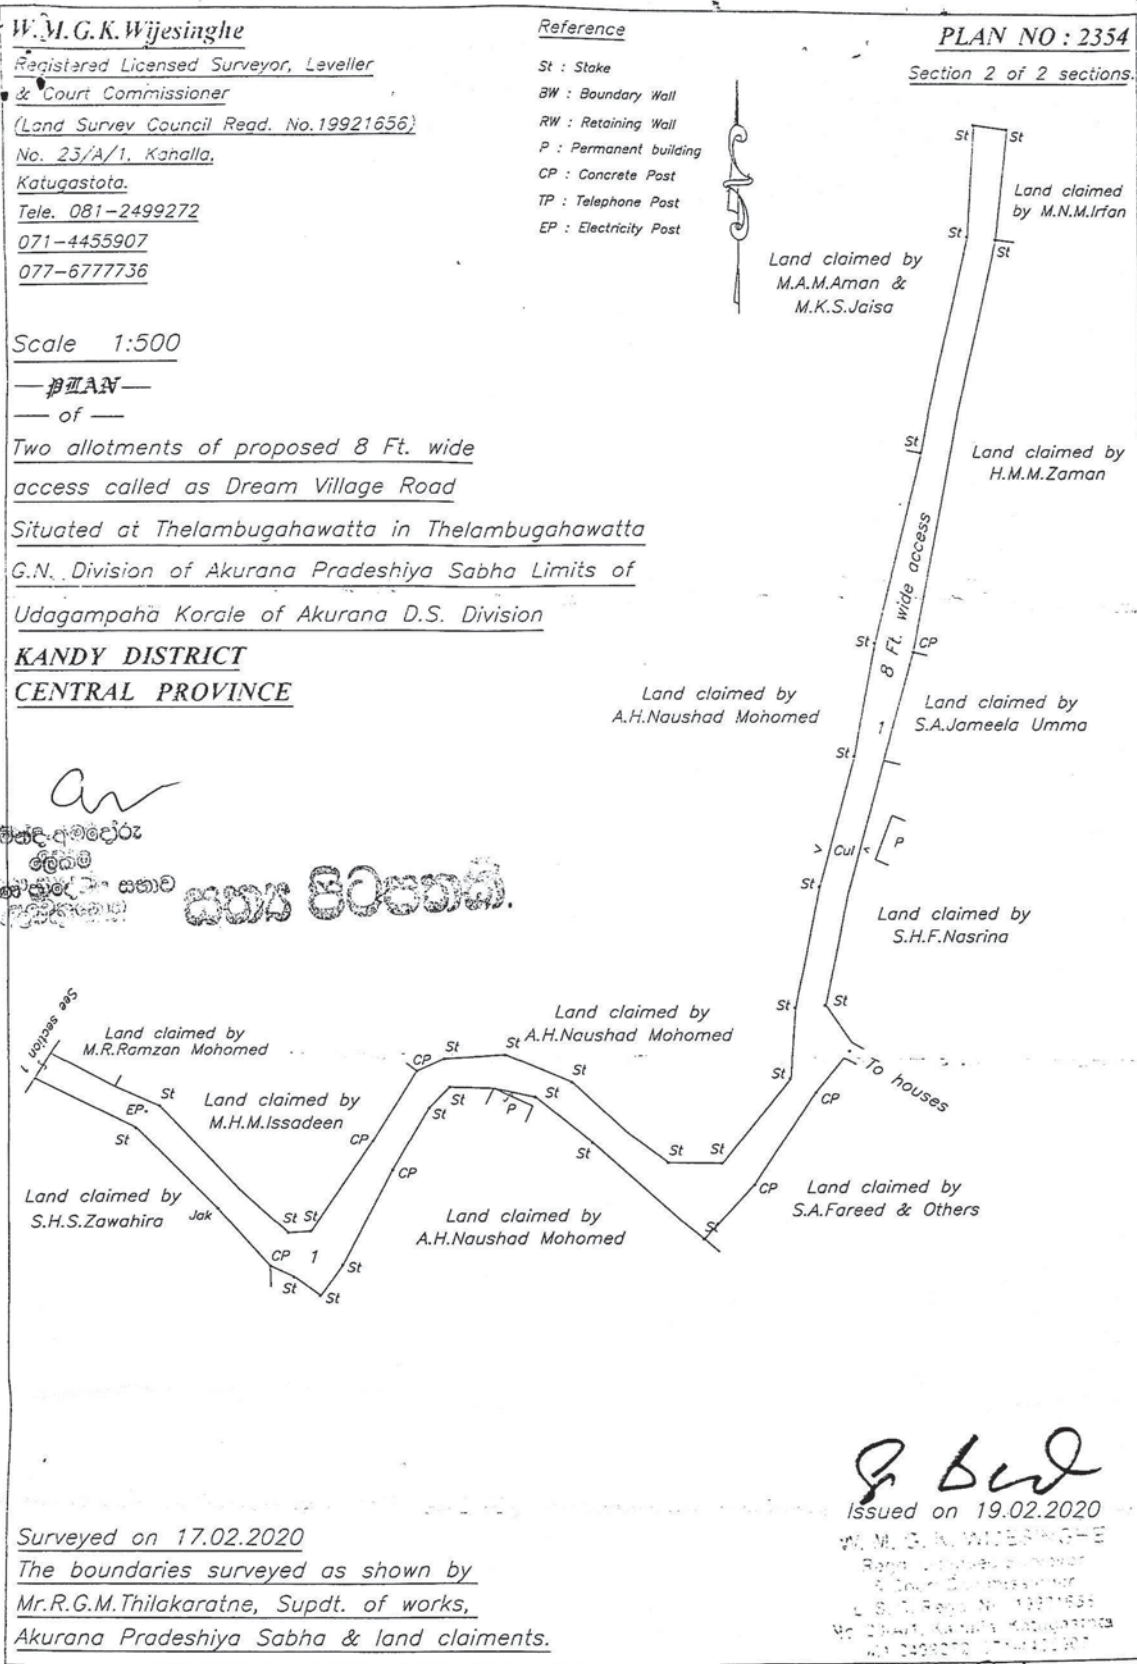 W.M.G.K.Wijesinghe
Registered Licensed Surveyor, Leveller
& Court Commissioner
(Land Survey Council Regd. No.19921656)
No. 23/A/1, Kahalla,
Katugastota.
Tele. 081-2499272
071-4455907
077-6777736
Reference
St : Stake
BW : Boundary Wall
RW : Retaining Wall
P : Permanent building
CP : Concrete Post
TP : Telephone Post
EP : Electricity Post
PLAN NO : 2354
Section 2 of 2 sections.
Scale 1:500
PLAN
of
Two allotments of proposed 8 Ft. wide
access called as Dream Village Road
Situated at Thelambugahawatta in Thelambugahawatta
G.N. Division of Akurana Pradeshiya Sabha Limits of
Udagampaha Korale of Akurana D.S. Division
KANDY DISTRICT
CENTRAL PROVINCE
St
St
Land claimed
by M.N.M.Irfan
St
St
Land claimed by
M.A.M.Aman &
M.K.S.Jaisa
St
Land claimed by
H.M.M.Zaman
8 Ft. wide access
St
CP
Land claimed by
A.H.Naushad Mohomed
Land claimed by
S.A.Jameela Umma
1
St
Cul
P
St
Land claimed by
S.H.F.Nasrina
ලේකම්
සභාව
සත්‍ය පිටපතකි.
St
St
See section 1
Land claimed by
M.R.Ramzan Mohomed
Land claimed by
A.H.Naushad Mohomed
To houses
CP
St
St
St
St
CP
EP
St
St
Land claimed by
M.H.M.Issadeen
St
St
P
St
CP
St
St
St
CP
CP
Land claimed by
S.H.S.Zawahira
Jak
Land claimed by
A.H.Naushad Mohomed
Land claimed by
S.A.Fareed & Others
St
St
St
CP
1
St
St
St
Surveyed on 17.02.2020
The boundaries surveyed as shown by
Mr.R.G.M.Thilakaratne, Supdt. of works,
Akurana Pradeshiya Sabha & land claiments.
Issued on 19.02.2020
W. M. G. K. WIJESINGHE